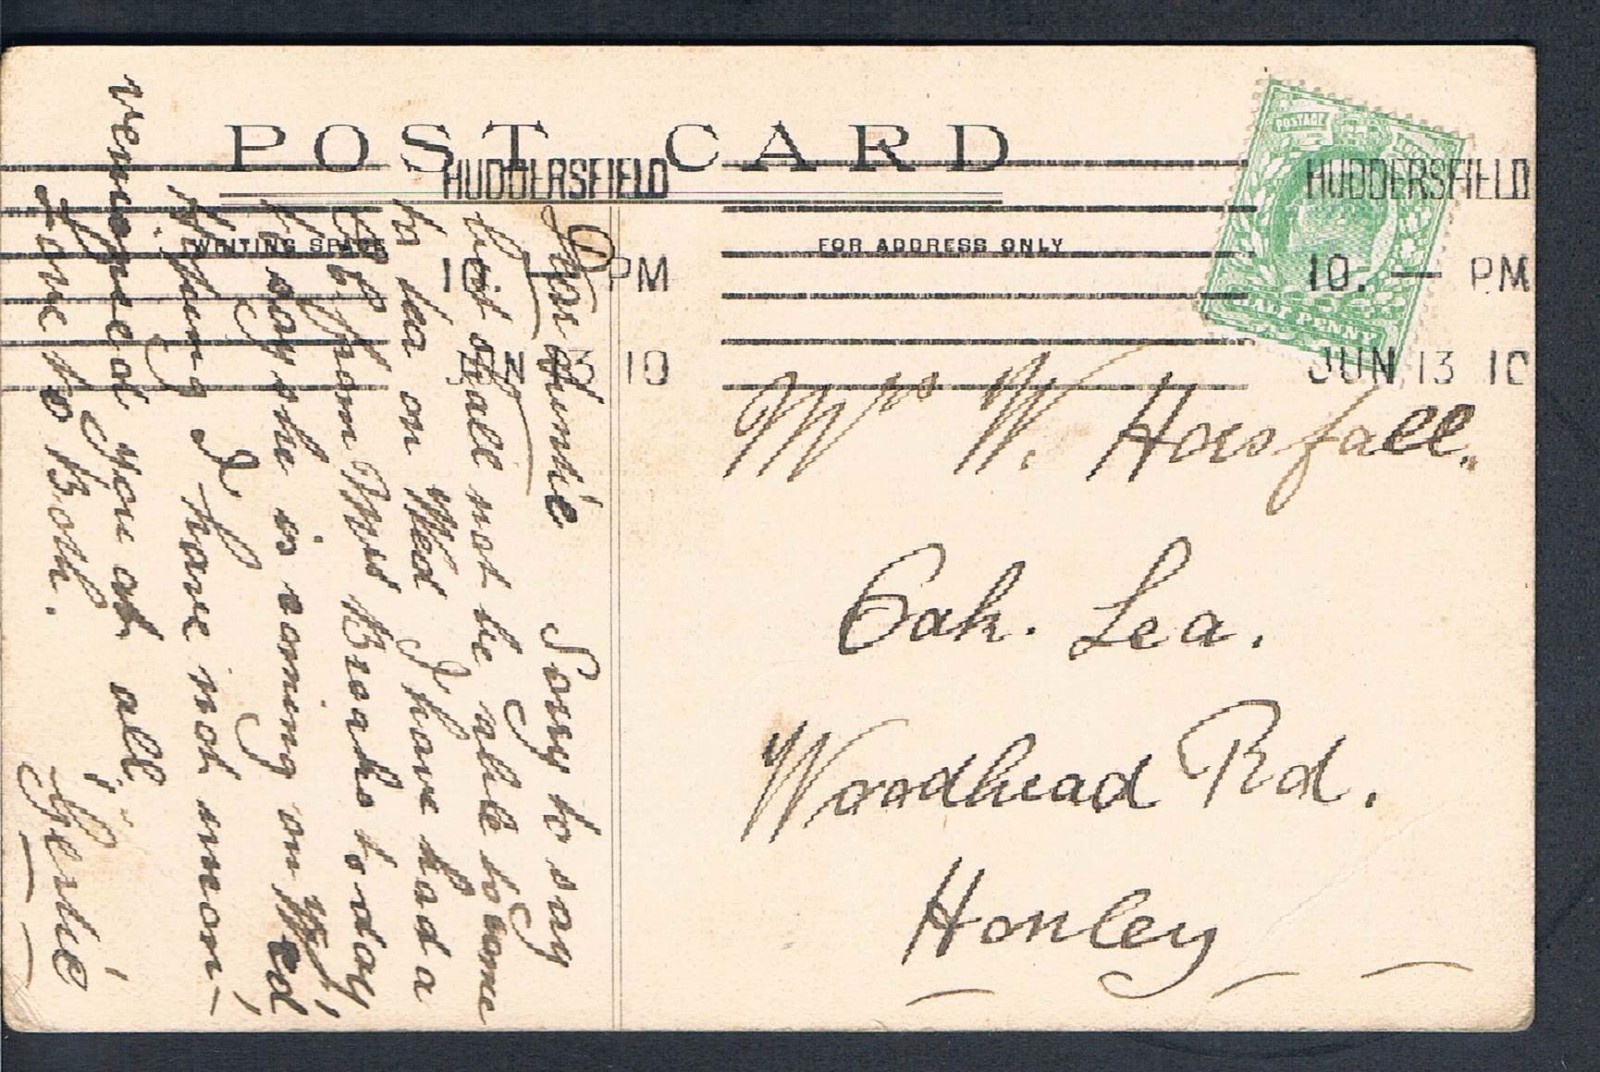 POST CARD
HUDDERSFIELD
10. — PM
JUN 13 10
HUDDERSFIELD
10. — PM
JUN 13 10
POSTAGE
HALF PENNY
WRITING SPACE
FOR ADDRESS ONLY
Mrs W. Horsfall.
Oak. Lea.
Woodhead Rd.
Honley
Sorry to say
but shall not be able to come
to tea on Wed I have had a
from Miss Brooks to-day
to say she is coming on Wed,
I have not mon-
you at all,
Love to Both.
Gertie